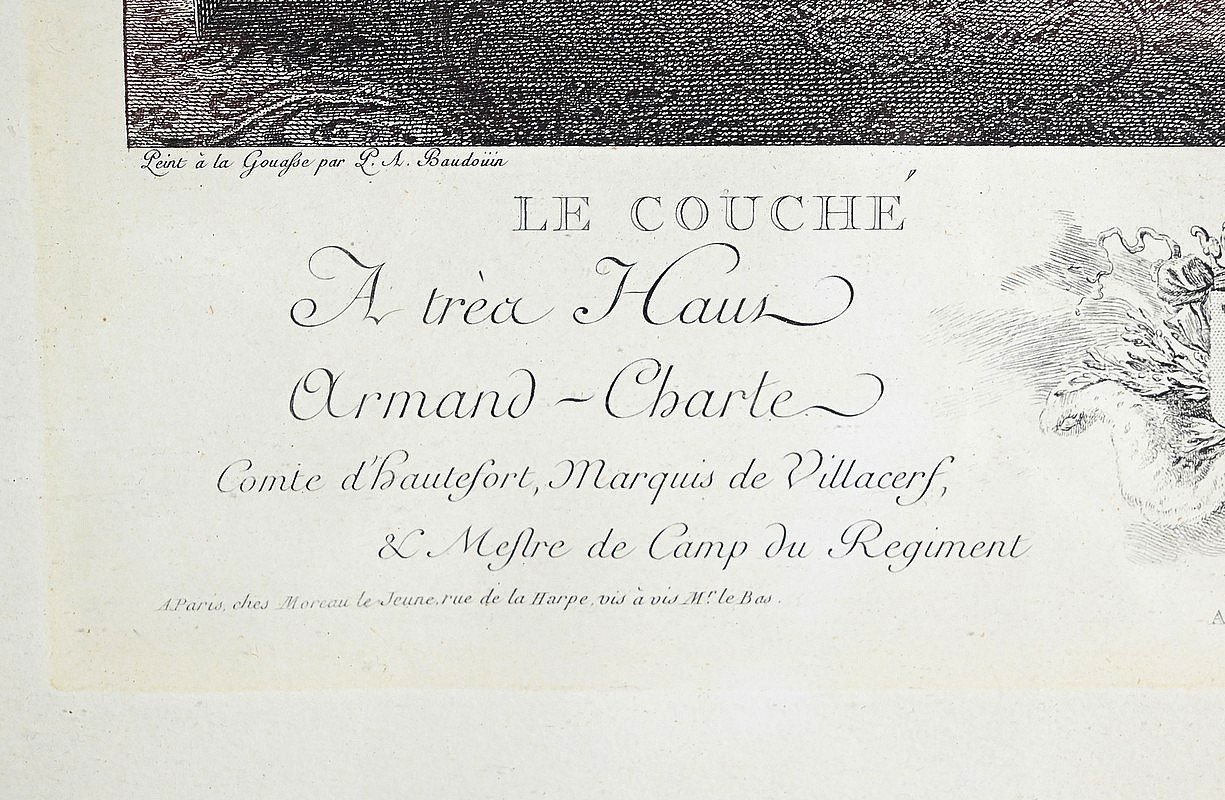 Peint à la Gouasse par P. A. Baudoüin
LE COUCHÉ
A très Haut
Armand-Charle
Comte d'hautefort, Marquis de Villacerf,
& Mestre de Camp du Regiment
A Paris, ches Moreau le Jeune, rue de la Harpe, vis à vis Mr. le Bas.
A